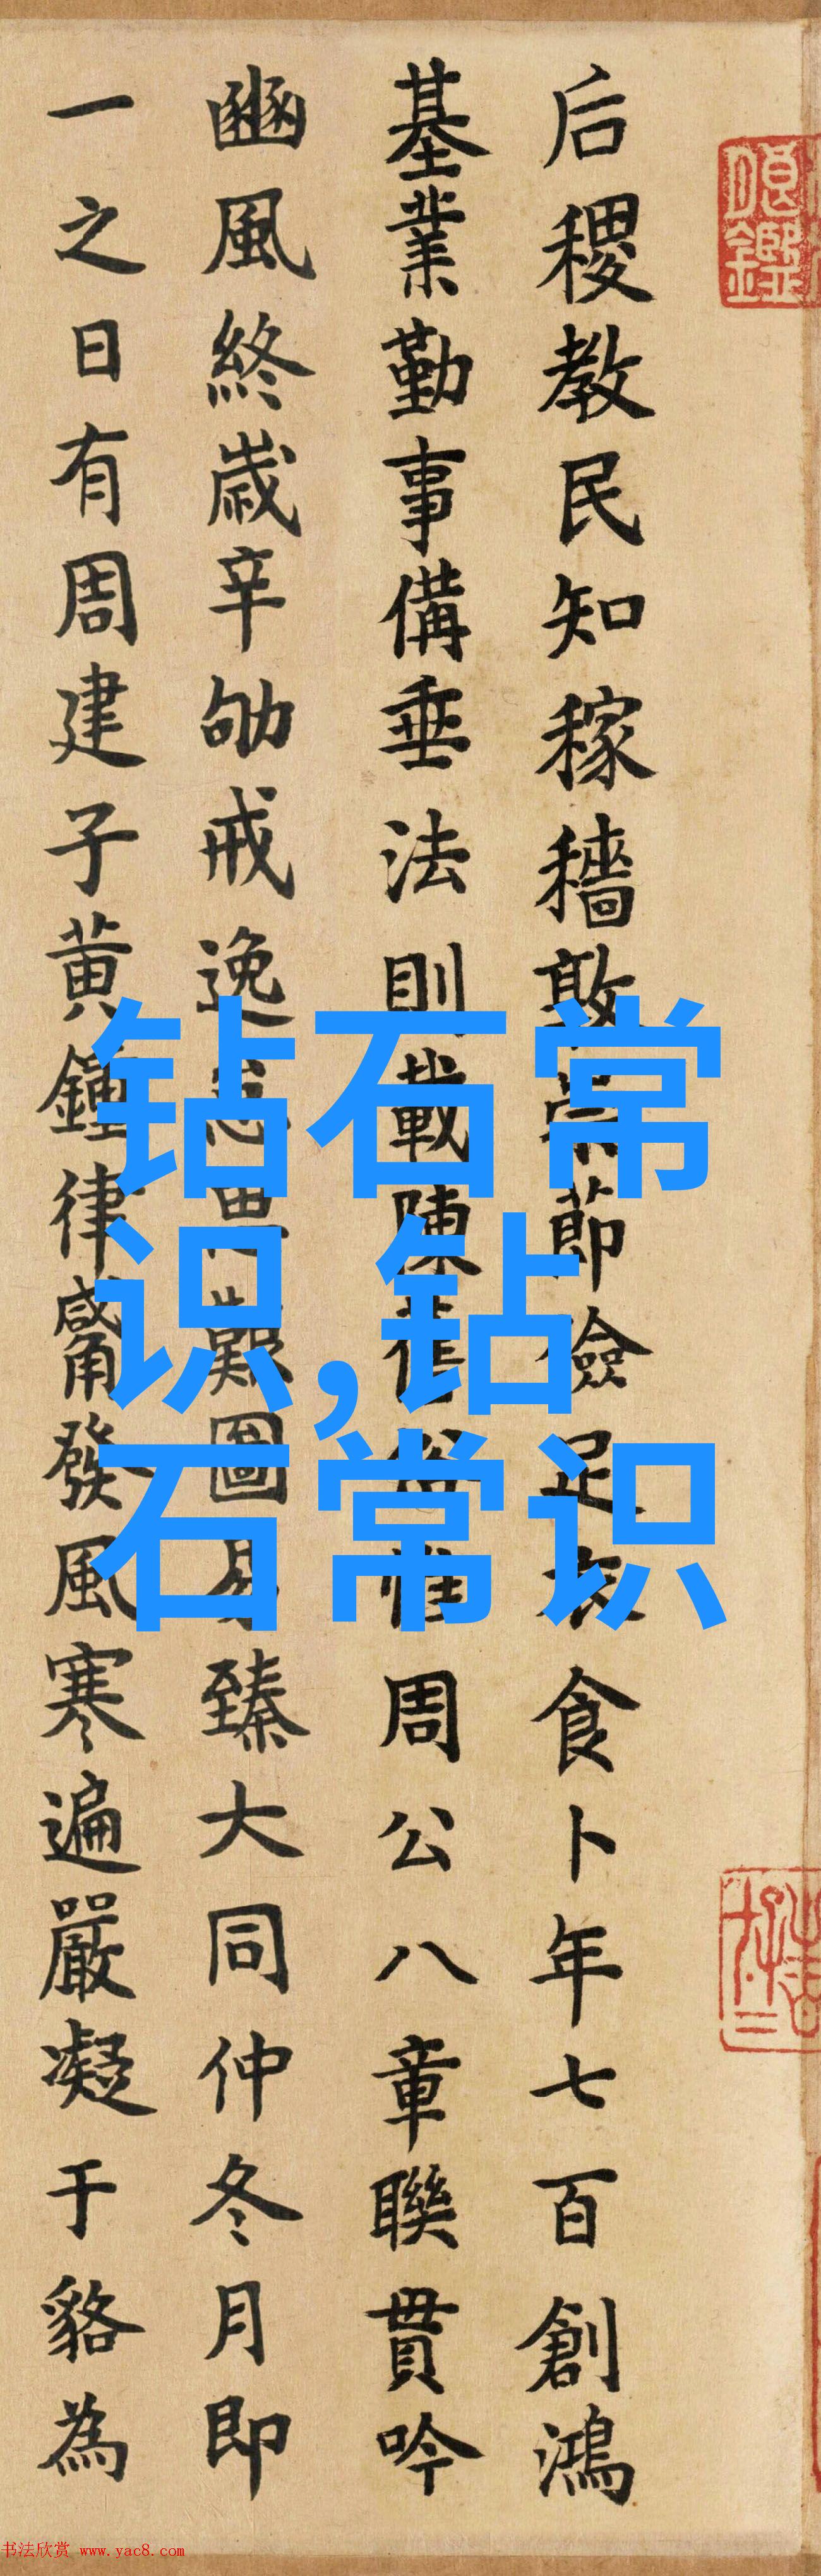 后稷教民知稼穡敦崇節儉足衣食卜年七百創鴻
基業勤事備垂法則載陳舊俗惟周公八章聯貫吟
豳風終歲辛劬戒逸怠思艱圖易臻大同仲冬月即
一之日有周建子黃鍾律觱發風寒遍嚴凝于貉為
钻石常
识,钻
石常识
书法欣赏 www.yac8.com